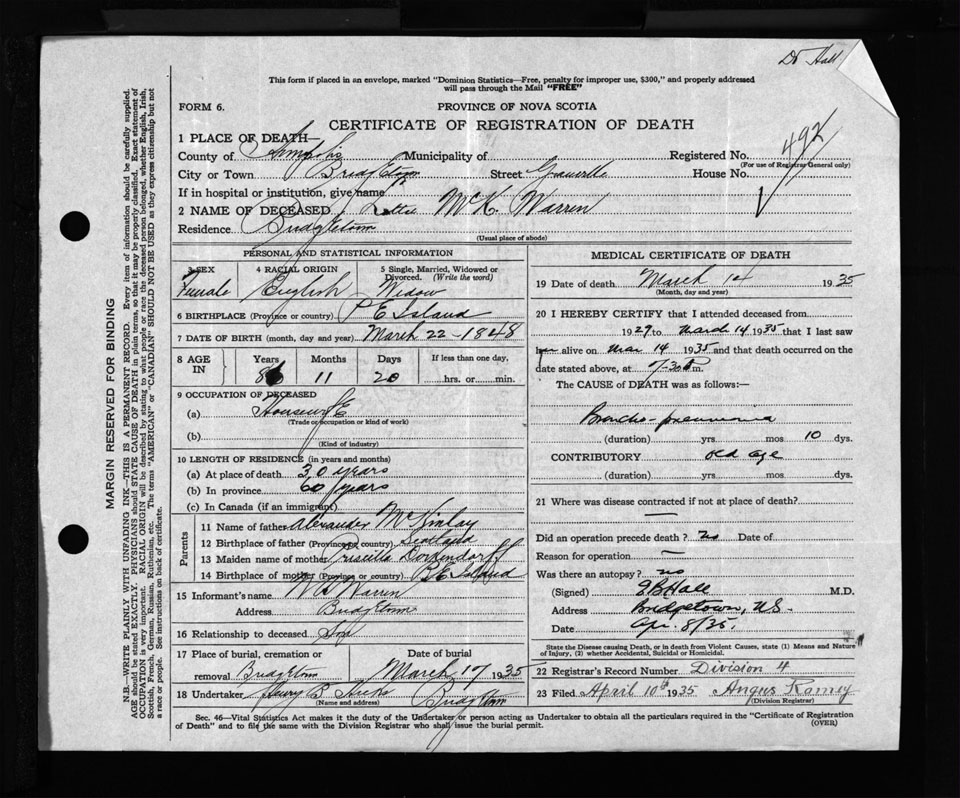 Dr Hall
This form if placed in an envelope, marked "Dominion Statistics—Free, penalty for improper use, $300," and properly addressed
will pass through the Mail "FREE"
FORM 6.
PROVINCE OF NOVA SCOTIA
CERTIFICATE OF REGISTRATION OF DEATH
1 PLACE OF DEATH—
County of Municipality of Registered No. 492
(For use of Registrar General only)
City or Town Bridgetown Street Granville House No.
If in hospital or institution, give name
2 NAME OF DECEASED Lottie McK. Warren
Residence Bridgetown
(Usual place of abode)
PERSONAL AND STATISTICAL INFORMATION
3 SEX 4 RACIAL ORIGIN 5 Single, Married, Widowed or
Divorced. (Write the word)
Female English Widow
6 BIRTHPLACE (Province or country) P E Island
7 DATE OF BIRTH (month, day and year) March 22 - 1848
8 AGE IN Years Months Days If less than one day,
86 11 20 hrs. or min.
9 OCCUPATION OF DECEASED
(a) Housewife
(Trade occupation or kind of work)
(b)
(Kind of industry)
10 LENGTH OF RESIDENCE (in years and months)
(a) At place of death 30 years
(b) In province 60 years
(c) In Canada (if an immigrant)
Parents
11 Name of father Alexander McKinlay
12 Birthplace of father (Province or country) Scotland
13 Maiden name of mother Priscilla Dorkendorff
14 Birthplace of mother (Province or country) P. E Island
15 Informant's name W D Warren
Address Bridgetown
16 Relationship to deceased Son
17 Place of burial, cremation or Date of burial
removal Bridgetown March 17 1935
18 Undertaker B. Hicks Bridgetown
(Name and address)
MEDICAL CERTIFICATE OF DEATH
19 Date of death March 14 1935
(Month, day and year)
20 I HEREBY CERTIFY that I attended deceased from
1929 to March 14 1935 that I last saw
her alive on Mar 14 1935 and that death occurred on the
date stated above, at 7-30 m.
The CAUSE of DEATH was as follows:—
Broncho-pneumonia
(duration) yrs. mos 10 dys.
CONTRIBUTORY old age
(duration) yrs. mos. dys.
21 Where was disease contracted if not at place of death? —
Did an operation precede death? no Date of
Reason for operation —
Was there an autopsy? no
(Signed) Hall M.D.
Address Bridgetown, N.S.
Date Apr. 8/35.
State the Disease causing Death, or in death from Violent Causes, state (1) Means and Nature
of Injury, (2) whether Accidental, Suicidal or Homicidal.
22 Registrar's Record Number Division 4
23 Filed April 10th 1935 Angus Ramey
(Division Registrar)
Sec. 46—Vital Statistics Act makes it the duty of the Undertaker or person acting as Undertaker to obtain all the particulars required in the "Certificate of Registration
of Death" and to file the same with the Division Registrar who shall issue the burial permit. (OVER)
MARGIN RESERVED FOR BINDING
N.B.—WRITE PLAINLY WITH UNFADING INK—THIS IS A PERMANENT RECORD. Every item of information should be carefully supplied.
AGE should be stated EXACTLY. PHYSICIANS should STATE CAUSE OF DEATH in plain terms, so that it may be properly classified. Exact statement of
OCCUPATION is very important. RACIAL ORIGIN will be described by stating to what people or race the deceased person belonged, whether English, Irish,
Scottish, French, German, Russian, Ruthenian, etc. The terms "AMERICAN" or "CANADIAN" SHOULD NOT BE USED as they express citizenship but not
a race or people. See instructions on back of certificate.